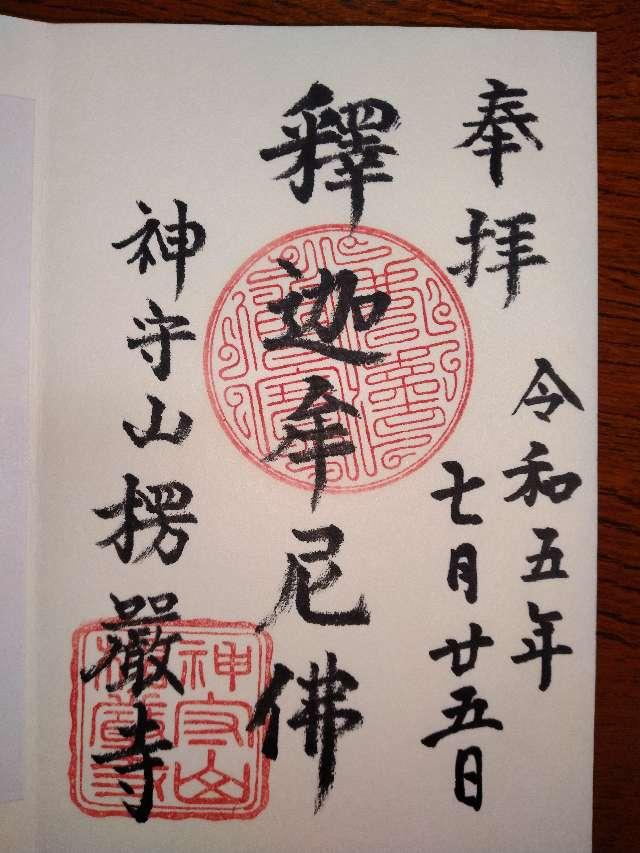 奉拝
令和五年
七月廿五日
釋迦牟尼佛
神守山楞嚴寺
神守山
楞嚴寺